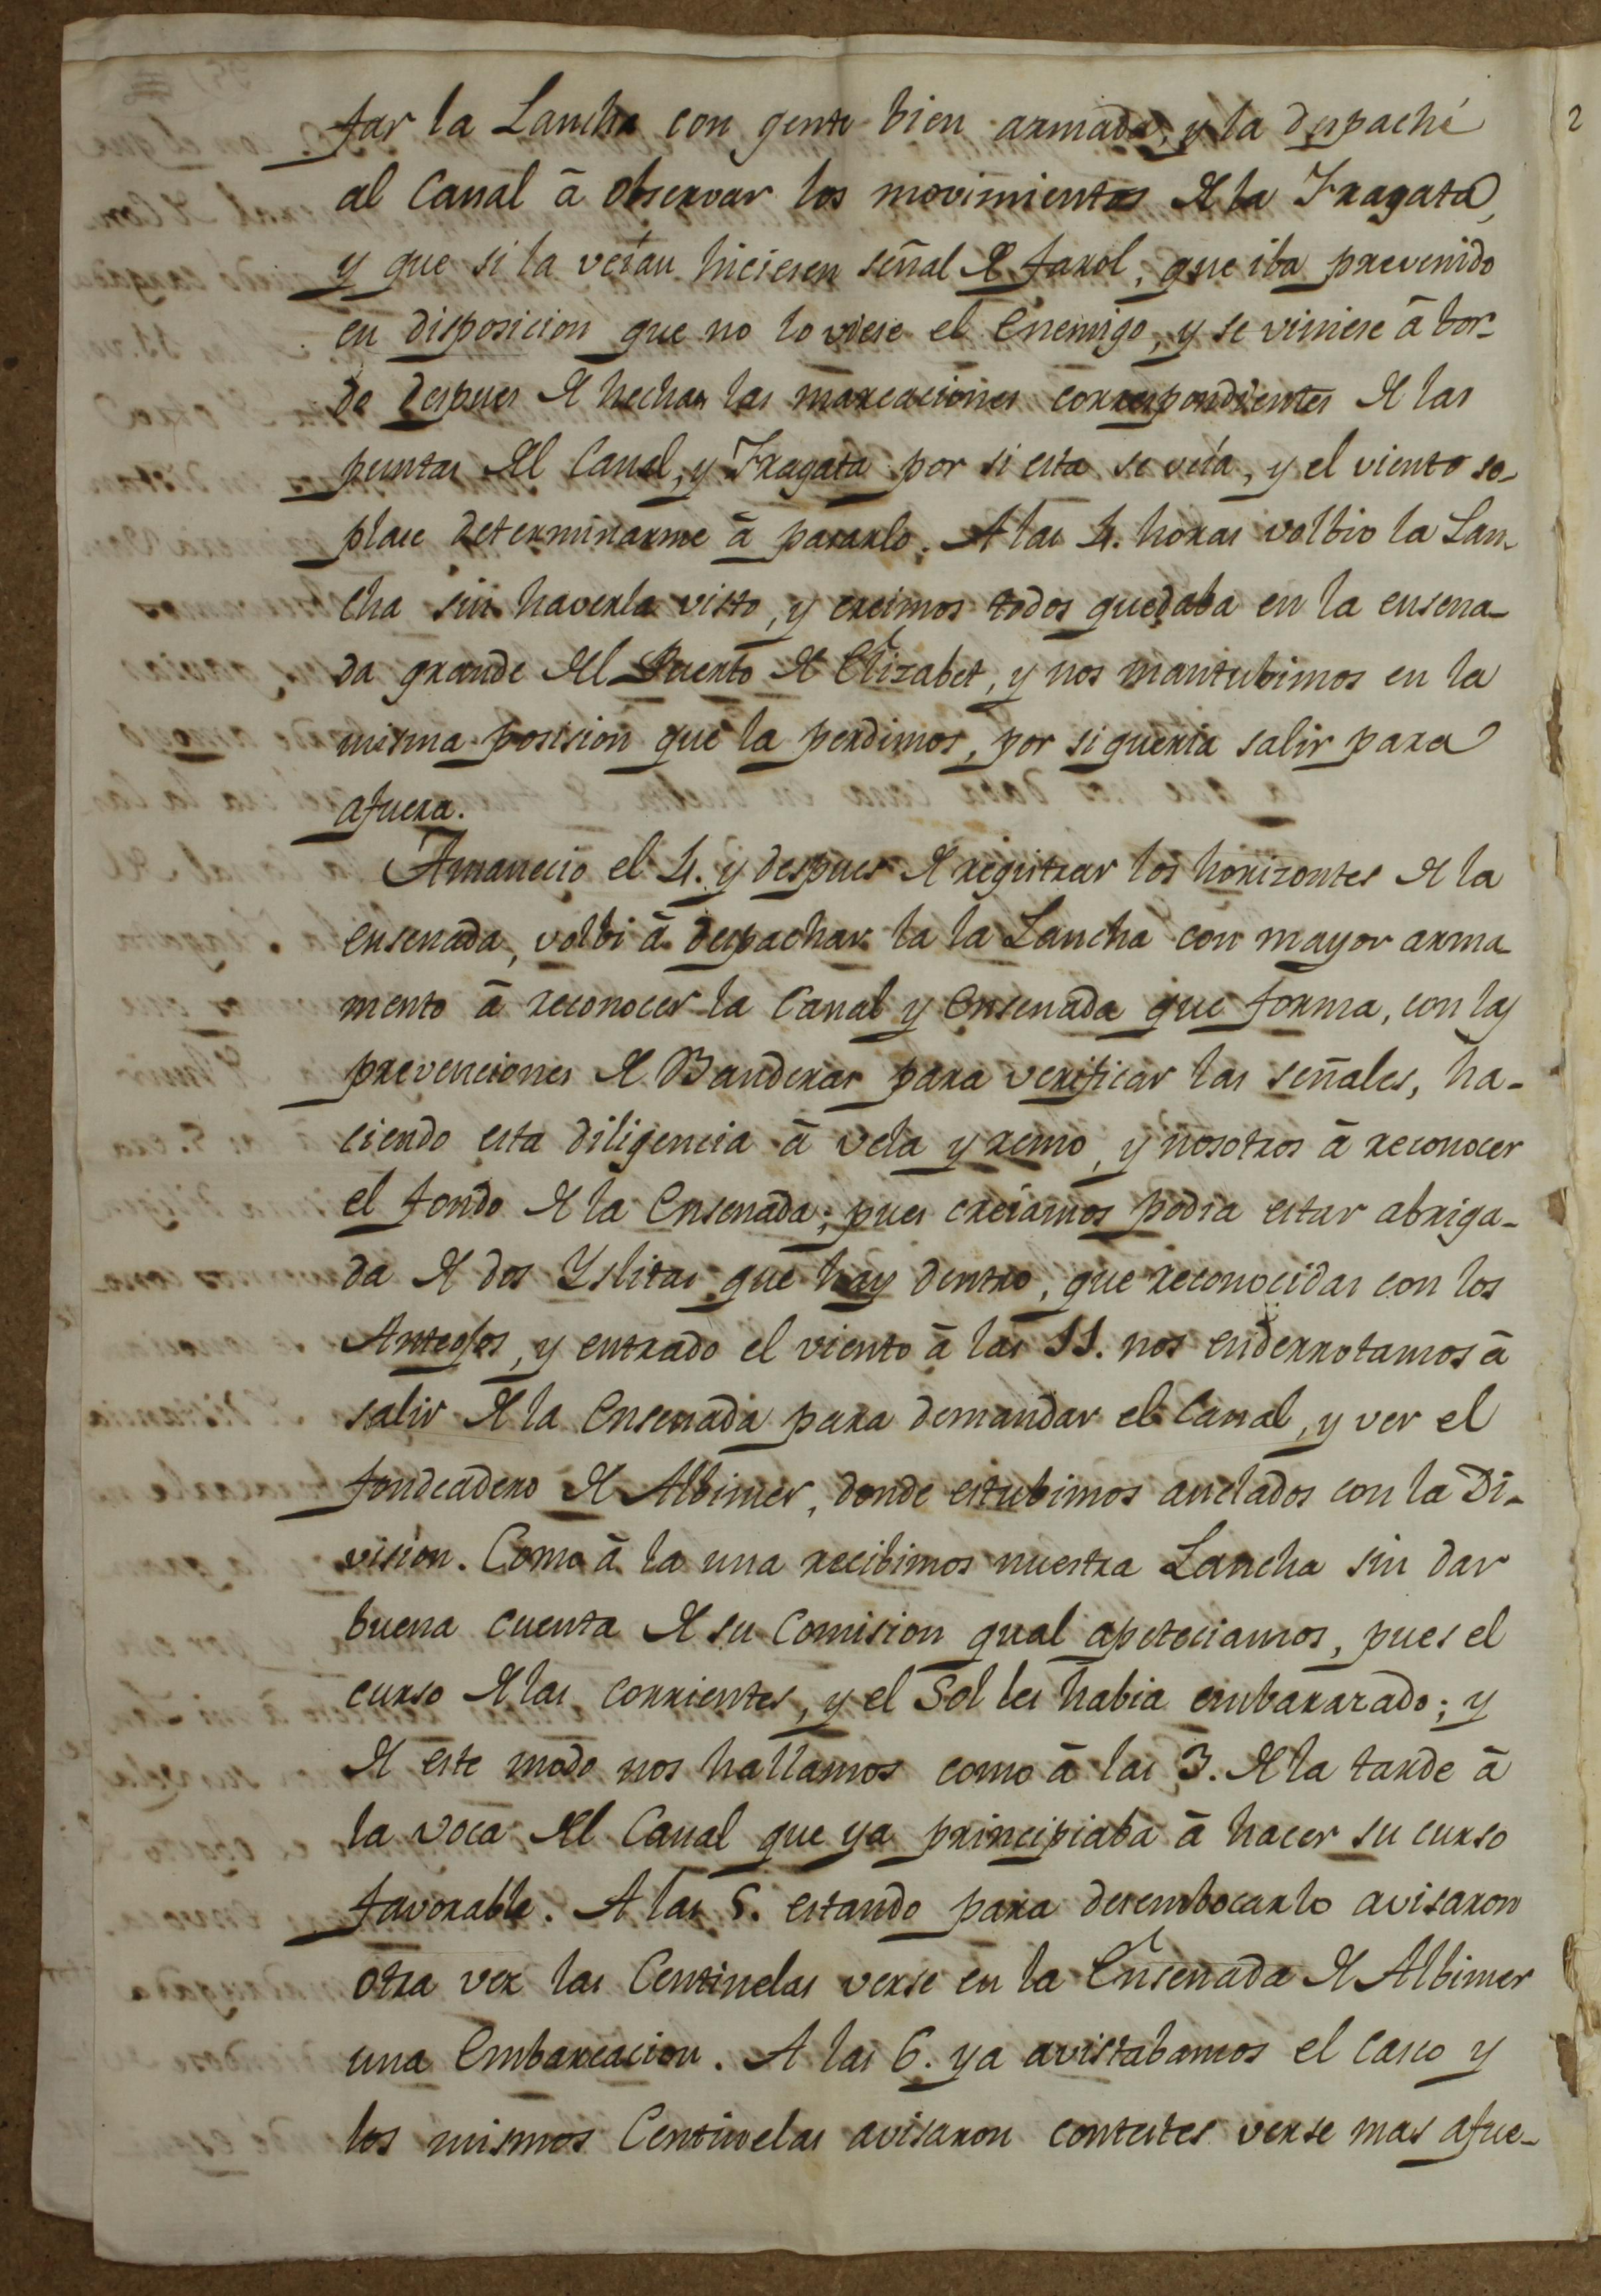 tar la Lancha con gente bien armada, y la despaché
al Canal â observar los movimientos de la Fragata,
y que si la veían hiciesen señal de farol, que iba prevenido
en disposicion que no lo viese el Enemigo, y se viniese â bor-
do despues de hechas las marcaciones correspondientes de las
puntas del Canal, y Fragata por si esta se veía, y el viento so-
plase determinarme â pasarlo. A las 4. horas volbio la Lan-
cha sin haverla visto, y creimos todos quedaba en la ensena-
da grande del Puerto de Elizabet, y nos mantubimos en la
misma posision que la perdimos, por si queria salir para
afuera.
Amanecio el 4. y despues de registrar los horizontes de la
ensenada, volbi â despachar la la Lancha con mayor arma-
mento â reconocer la Canal y Ensenada que forma, con las
prevenciones de Banderas para verificar las señales, ha-
ciendo esta diligencia â vela y remo, y nosotros â reconocer
el fondo de la Ensenada; pues creiamos podia estar abriga-
da de dos Yslitas que hay dentro, que reconocidas con los
Anteojos, y entrado el viento â las 11. nos enderrotamos â
salir de la Ensenada para demandar el Canal, y ver el
fondeadero de Albimer, donde estubimos anclados con la Di-
vision. Como â la una recibimos nuestra Lancha sin dar
buena cuenta de su Comision qual apeteciamos, pues el
curso de las corrientes, y el Sol les habia embarazado; y
de este modo nos hallamos como â las 3. de la tarde â
la voca del Canal que ya principiaba â hacer su curso
favorable. A las 5. estando para desembocarlo avisaron
otra vez las Centinelas verse en la Ensenada de Albimer
una Embarcacion. A las 6. ya avistabamos el casco y
los mismos Centinelas avisaron contestes verse mas afue-
2